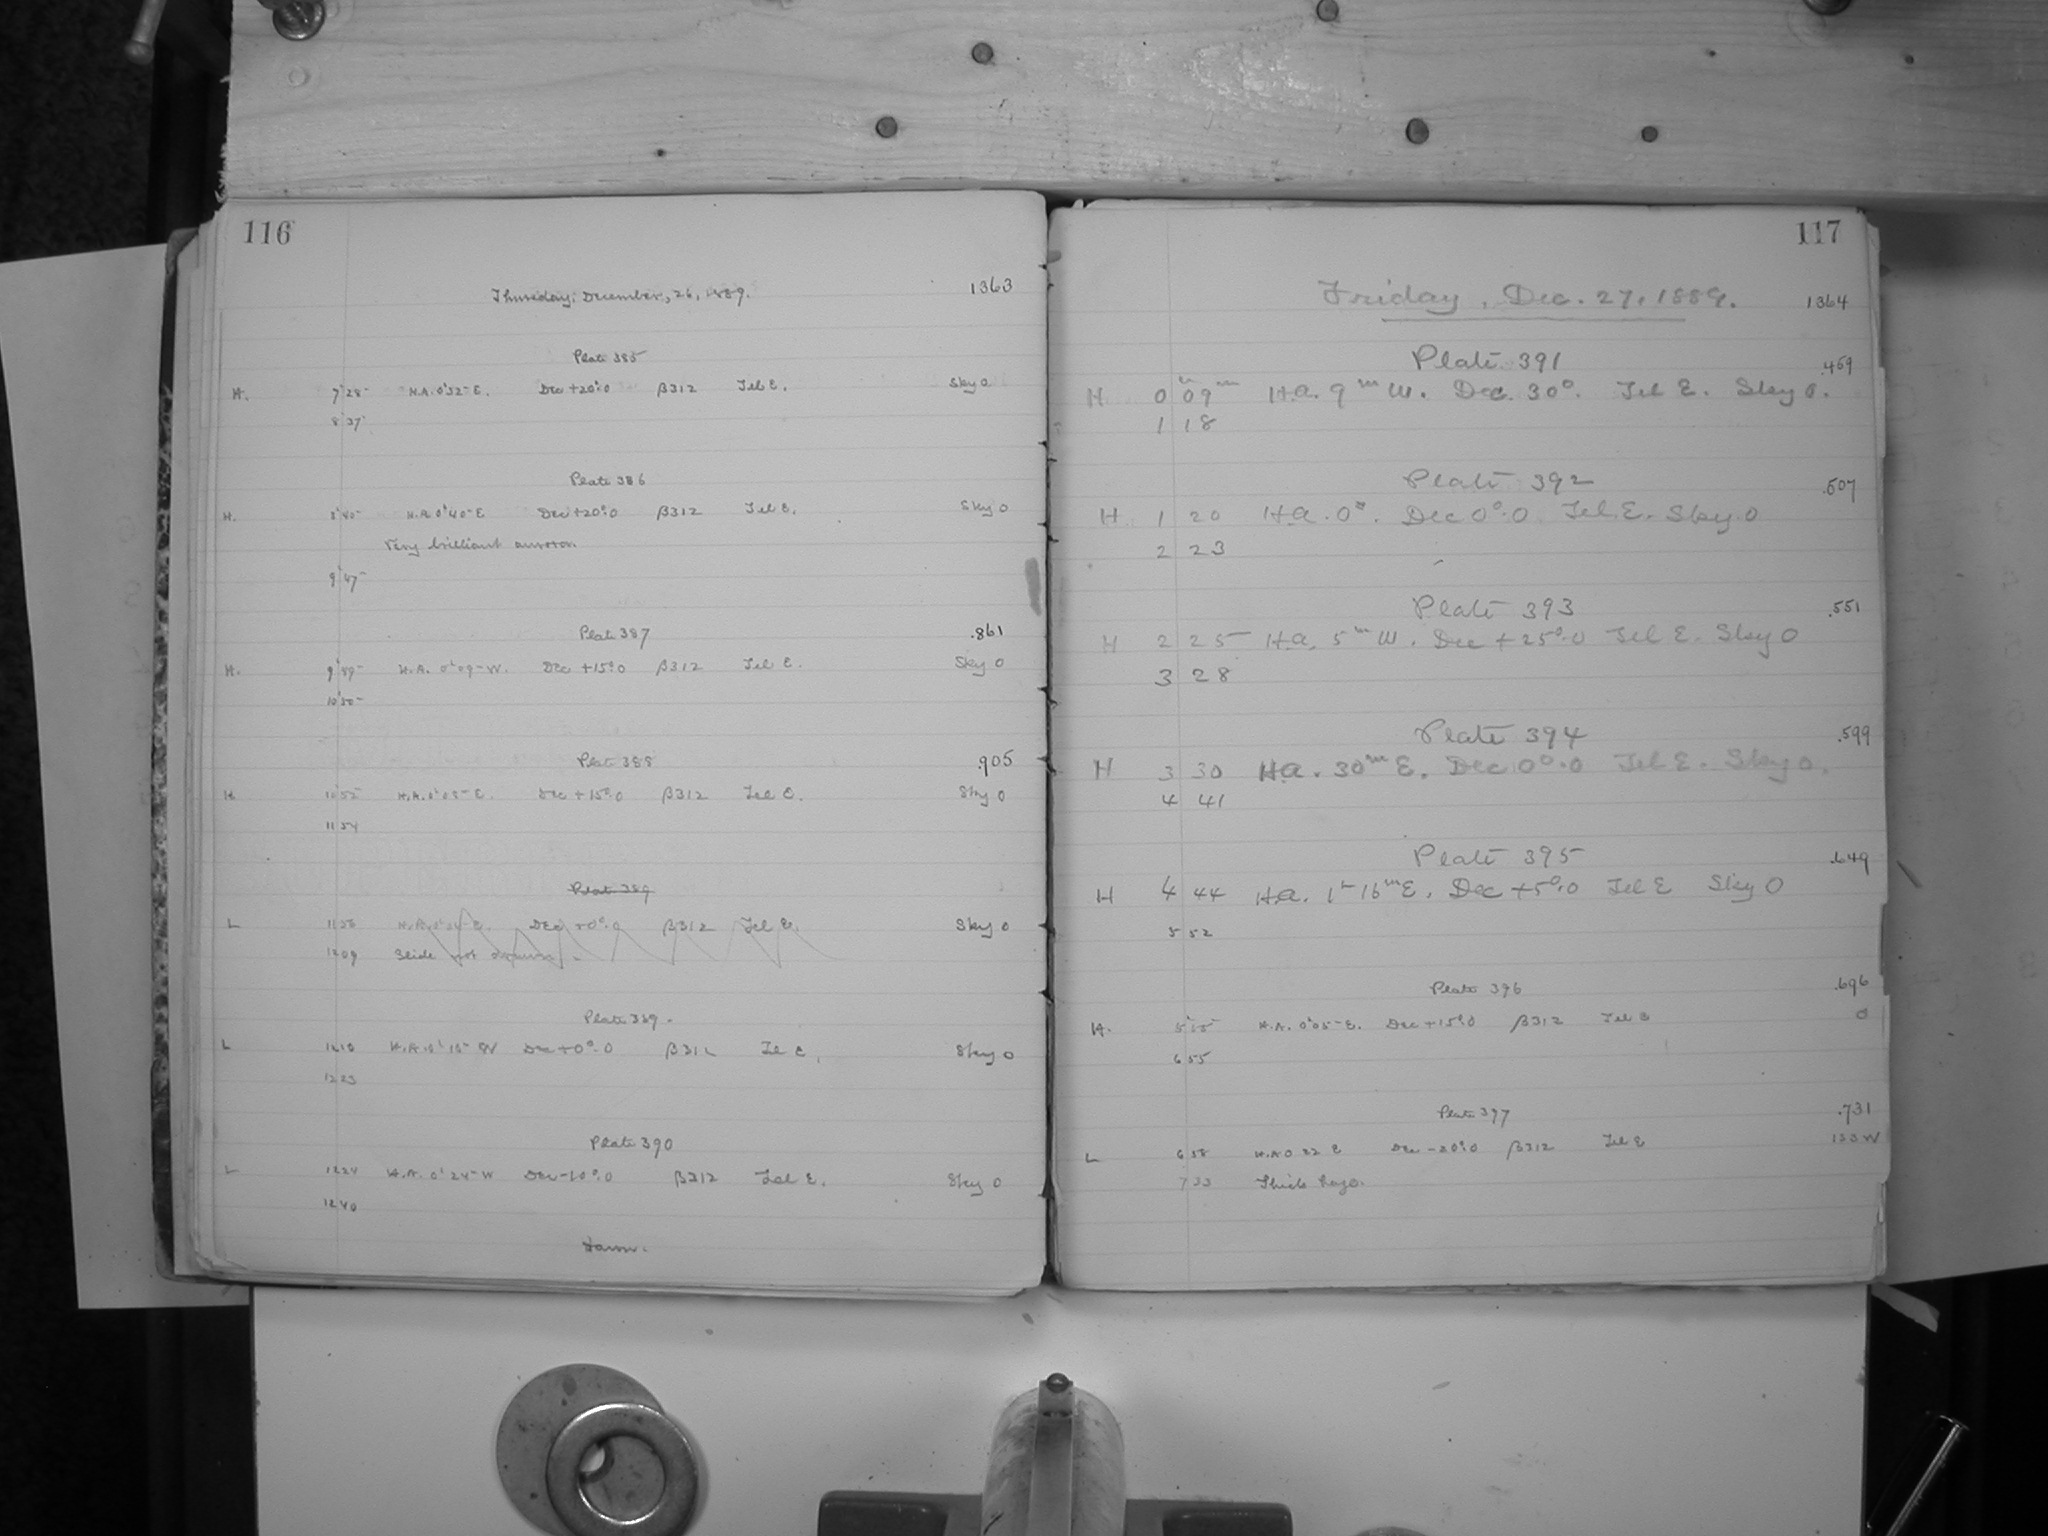 116
Thursday, December, 26, 1889. 1363
Plate 385
H. 7 28 H.A. 0h32m E. Dec +20°.0 β312 Tel E. Sky 0
8 37
Plate 386
H. 8 40 H.A. 0h40m E Dec +20°.0 β312 Tel E. Sky 0
Very brilliant aurora.
9 47
Plate 387 .861
H. 9 49 H.A. 0h09m W. Dec +15°.0 β312 Tel E. Sky 0
10 50
Plate 388 .905
H. 10 52 H.A. 0h05m E. Dec +15°.0 β312 Tel E. Sky 0
11 54
Plate 389
L 11 58 Dec +0°.0 β312 Tel E. Sky 0
12 09 Slide not drawn.
Plate 389.
L 12 10 H.A. 0h10m W Dec +0°.0 β312 Tel E. Sky 0
12 23
Plate 390
L 12 24 H.A. 0h24m W Dec -10°.0 β312 Tel E. Sky 0
12 40
117
Friday, Dec. 27, 1889. 1364
Plate 391 .459
H 0h 09m H.a. 9m W. Dec. 30°. Tel E. Sky 0.
1 18
Plate 392 .507
H 1 20 H.a. 0m. Dec 0°.0 Tel. E. Sky 0
2 23
Plate 393 .551
H 2 25 H.a. 5m W. Dec +25°.0 Tel E. Sky 0
3 28
Plate 394 .599
H 3 30 H.a. 30m E. Dec 0°.0 Tel E. Sky 0.
4 41
Plate 395 .649
H 4 44 H.a. 1h 16m E. Dec +5°.0 Tel E Sky 0
5 52
Plate 396 .696
H. 5 55 H.A. 0h05m E. Dec +15°.0 β312 Tel E 0
6 55
Plate 397 .731
L 6 58 H.A 0 22 E Dec -20°.0 β312 Tel E
7 33 Thick haze.